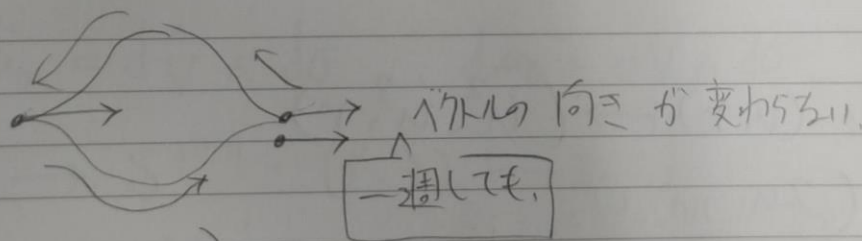 ベクトルの向きが変わらない.
一周しても,